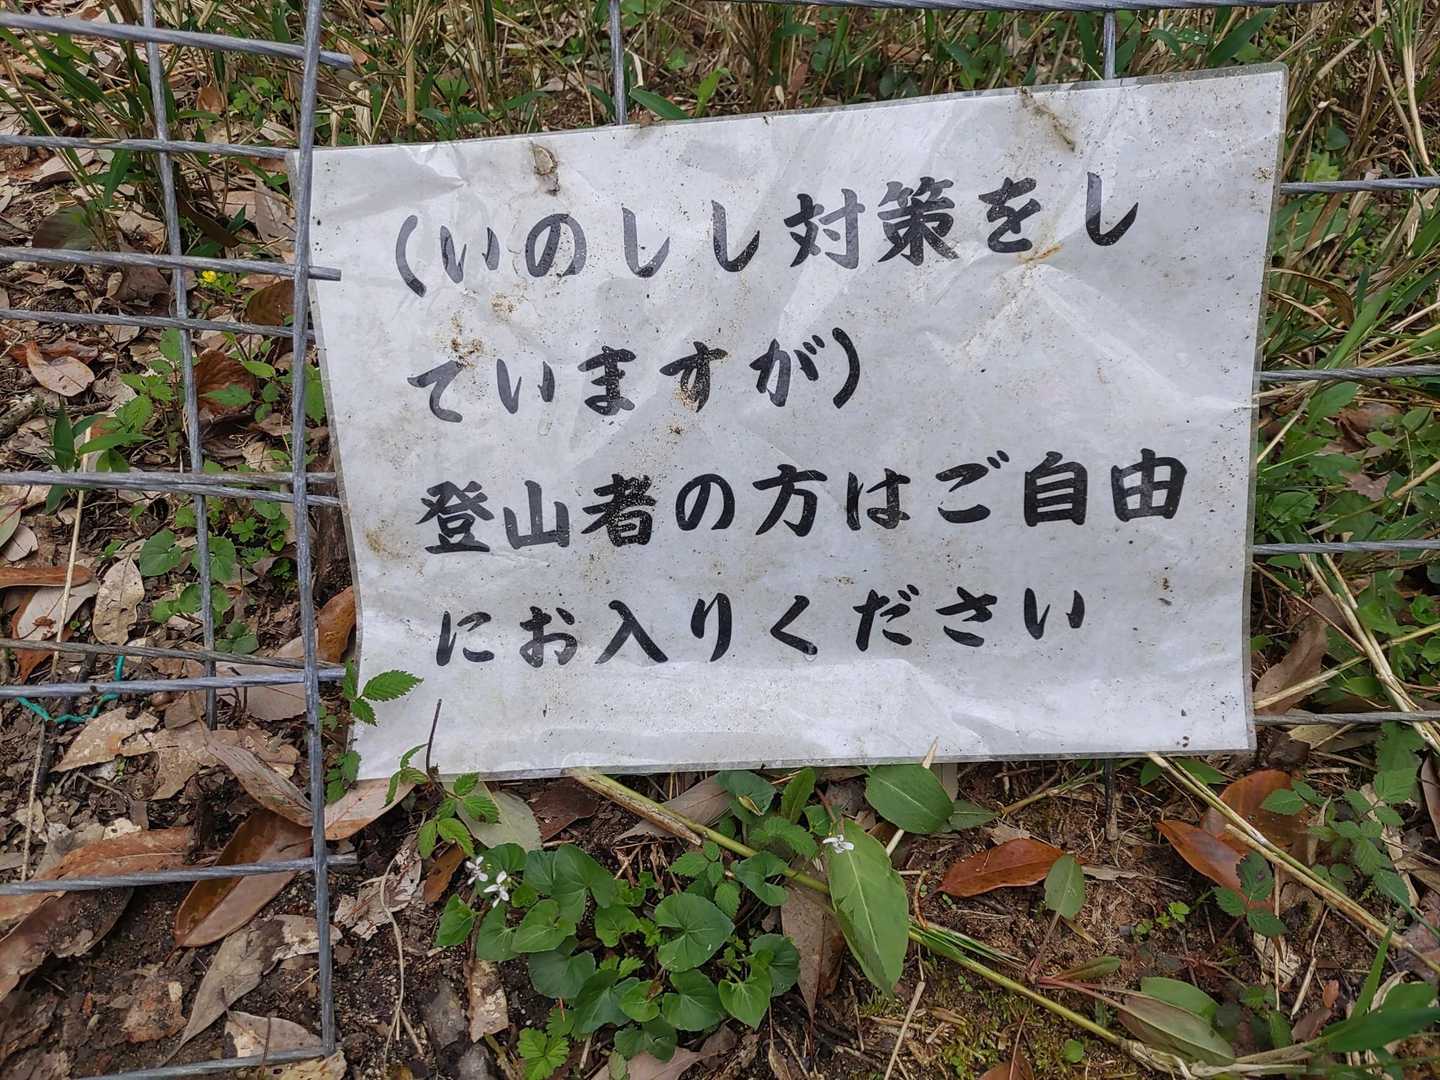 （いのしし対策をし
ていますが）
登山者の方はご自由
にお入りください